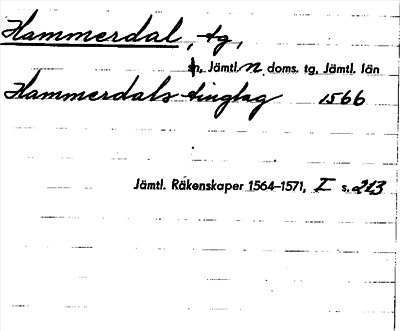 Hammerdal, tg,
h, Jämtl. n doms. tg, Jämtl. län
Hammerdals tinglag 1566
Jämtl. Räkenskaper 1564–1571, I s. 213